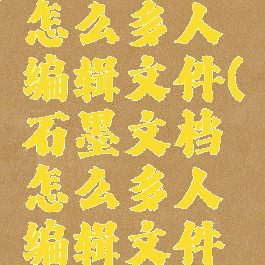 怎么多人
编辑文件(
石墨文档
怎么多人
编辑文件